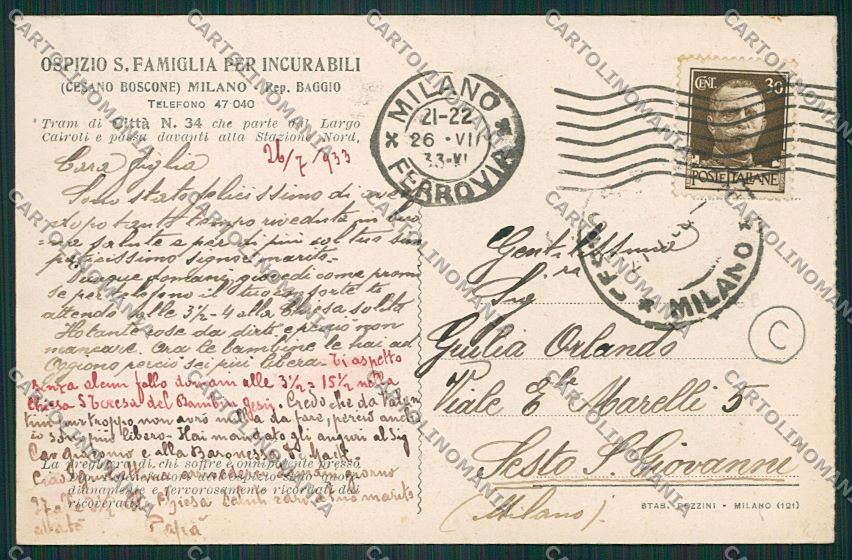 OSPIZIO S. FAMIGLIA PER INCURABILI
(CESANO BOSCONE) MILANO Rep. BAGGIO
TELEFONO 47 040
Tram di Città N. 34 che parte dal Largo
Cairoli e passa davanti alla Stazione Nord,
26/7/933
Cara figlia
Sono stato felicissimo di aver
dopo tanto tempo riveduta in buo
=na salute e per di più col tuo sim
paticissimo signor marito-
Dunque domani, giovedì come promi
se per telefono il tuo consorte ti
attendo dalle 3½-4 alla Chiesa solita
Ho tante cose da dirti e perciò non
mancare. Ora le bambine le hai ad
Oggiono perciò sei più libera- Ti aspetto
senza alcun fallo domani alle 3½=15½ nella
chiesa S Teresa del Bambin Gesù. Credo che da
purtroppo non avrò nulla da fare, perciò anch
io son più libero- Hai mandato gli auguri al Sig
Cav Giacomo e alla Baronessa
La preghiera di chi soffre è onnipotente presso
Ciao
dianamente e fervorosamente ricordati dei
27
ricoverati.
marito
Papà
MILANO
21-22
26 · VII
33-XI
FERROVIA
CENT. 30
POSTE ITALIANE
MILANO
Gent.issima
Sig.ra
Giulia Orlando
Viale E. Marelli 5
Sesto S. Giovanni
(Milano)
C
STAB. PEZZINI - MILANO (121)
CARTOLINOMANIA